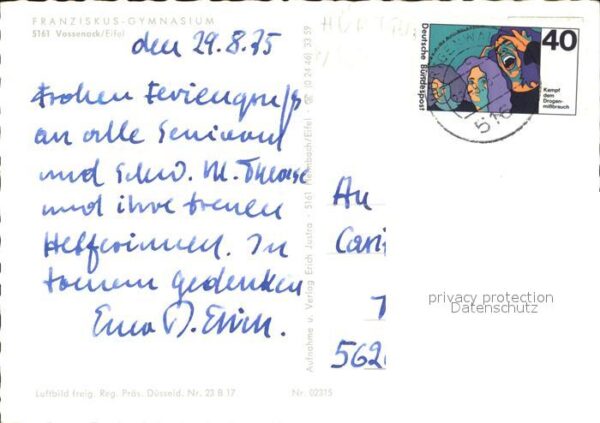 FRANZISKUS-GYMNASIUM
5161 Vossenack/Eifel
den 29.8.75
Frohen Feriengruß
an alle
und Schw. M. Therese
und ihre treuen
Helferinnen. In
treuem Gedenken
Aufnahme u. Verlag Erich Justra - 5161 Heimbach/Eifel ☎ (0 24 46) 33 59
Deutsche Bundespost
40
Kampf
dem
Drogen-
mißbrauch
516
An
Cari
562
privacy protection
Datenschutz
Luftbild freig. Reg. Präs. Düsseld. Nr. 23 B 17
Nr. 02315